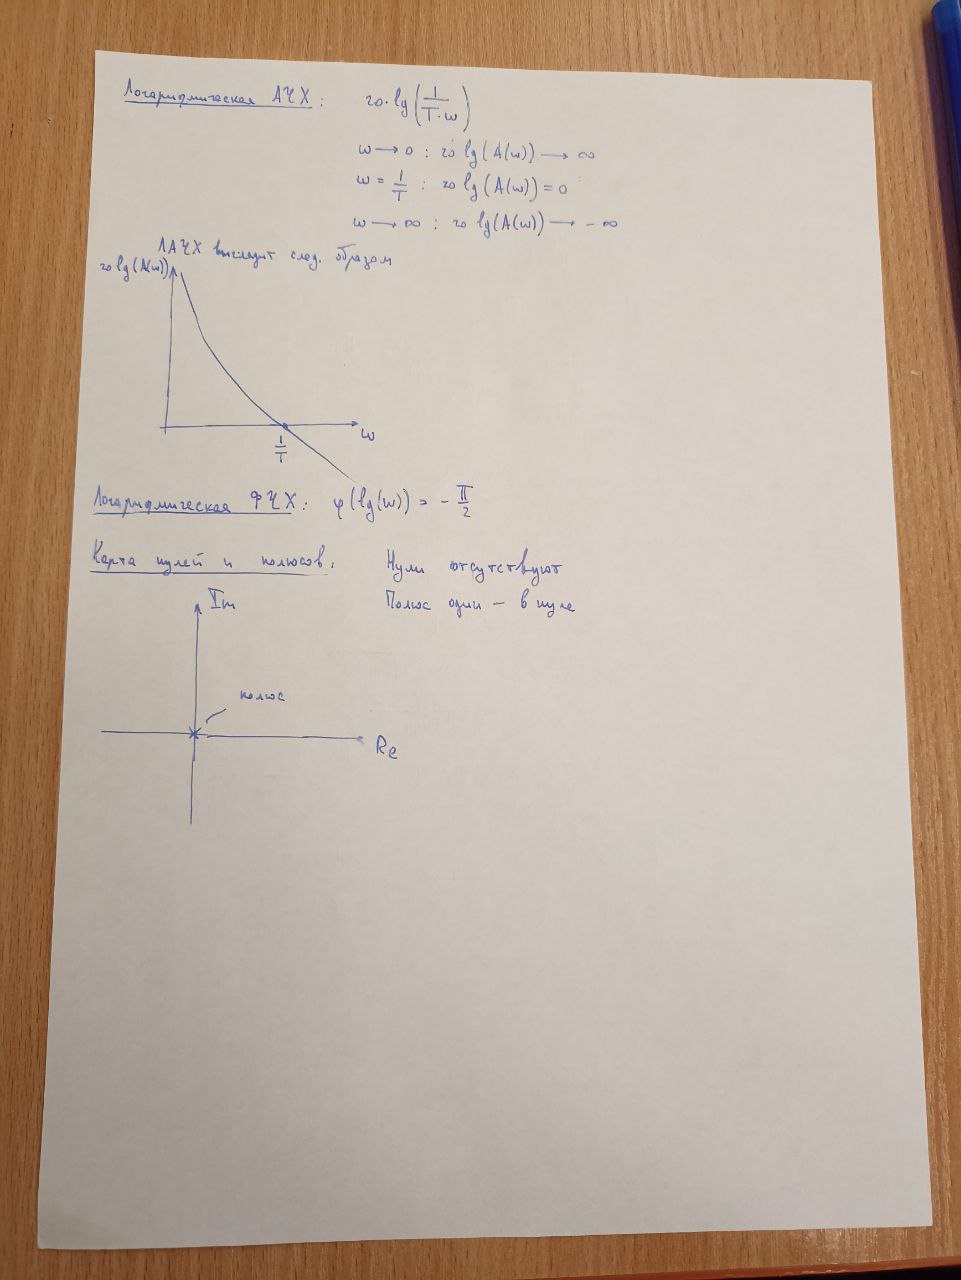 Логарифмическая АЧХ: 20·lg(1/(T·ω))
ω → 0 : 20 lg(A(ω)) → ∞
ω = 1/T : 20 lg(A(ω)) = 0
ω → ∞ : 20 lg(A(ω)) → -∞
ЛАЧХ выглядит след. образом
20 lg(A(ω))
ω
1/T
Логарифмическая ФЧХ: φ(lg(ω)) = - π/2
Карта нулей и полюсов: Нули отсутствуют
Полюс один — в нуле
Im
полюс
Re